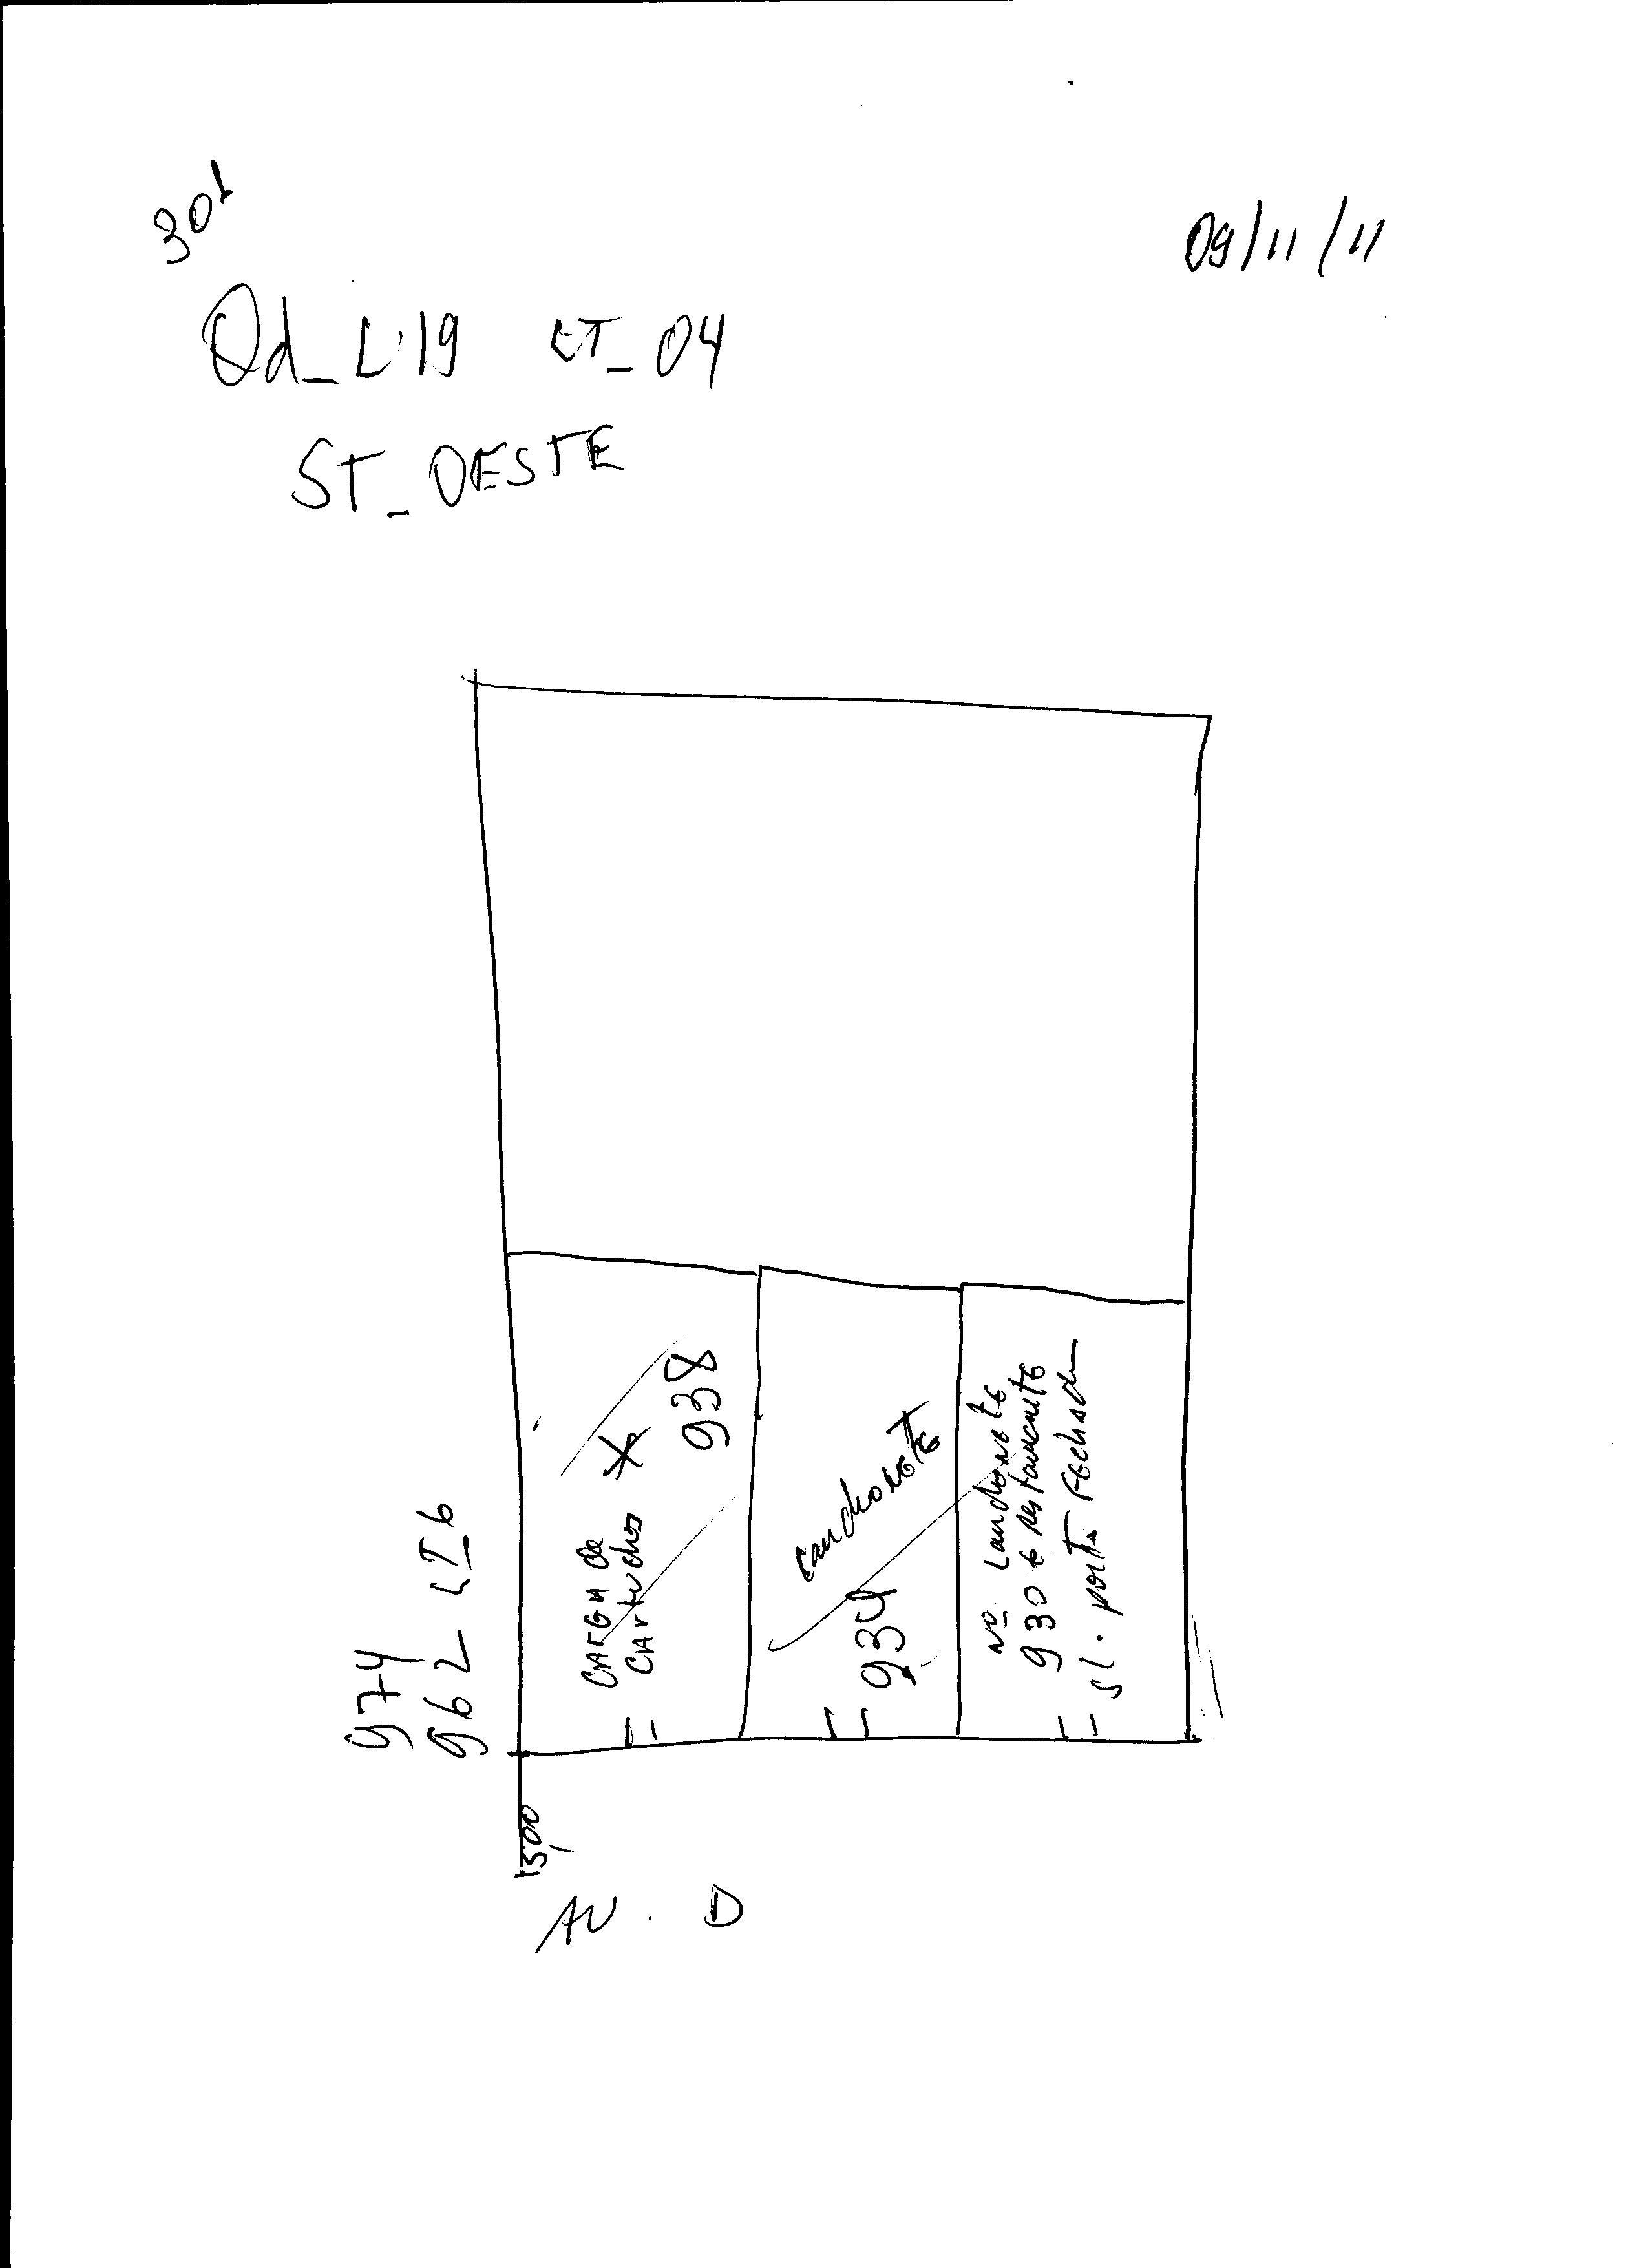 301
09/11/11
Qd_L19 LT_04
ST_OESTE
974
962 LT_6
CARGA de
CArtuchos *
938
Lanchonete
934
Nº Lanchonete
930 e restaurante
sl. porta Fechada
15,00
AV. D